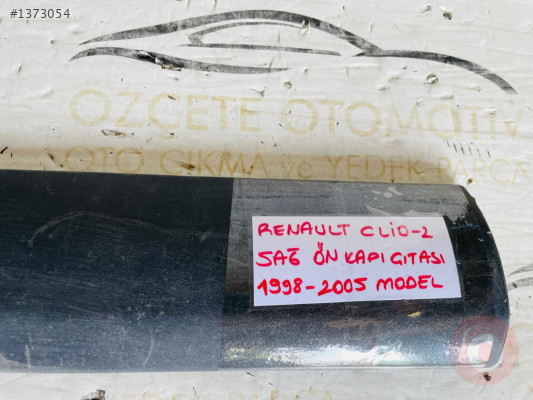 #1373054
ÖZÇETE OTOMOTİV
OTO ÇIKMA ve YEDEK PARÇA
RENAULT CLİO-2
SAĞ ÖN KAPI ÇITASI
1998-2005 MODEL